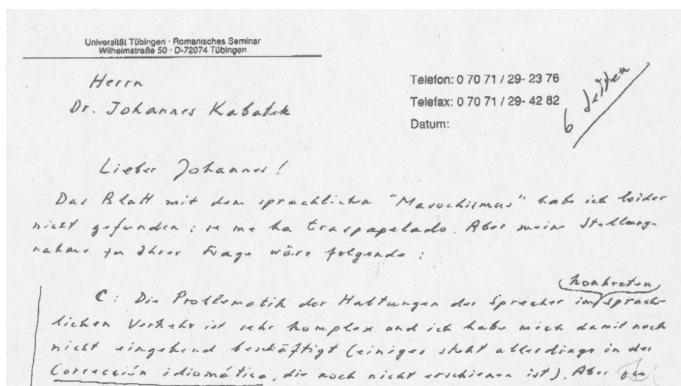 Universität Tübingen · Romanisches Seminar
Wilheimstraße 50 · D-72074 Tübingen
Herrn
Dr. Johannes Kabatek
Telefon: 0 70 71 / 29- 23 76
Telefax: 0 70 71 / 29- 42 82
Datum:
6 Seiten
Lieber Johannes!
Das Blatt mit dem sprachlichen "Masochismus" habe ich leider
nicht gefunden: se me ha traspapelado. Aber meine Stellung-
nahme zu Ihrer Frage wäre folgende:
konkreten
C: Die Problematik der Haltungen der Sprecher im sprach-
lichen Verkehr ist sehr komplex und ich habe mich damit noch
nicht eingehend beschäftigt (einiges steht allerdings in der
Corrección idiomática, die noch nicht erschienen ist). Aber